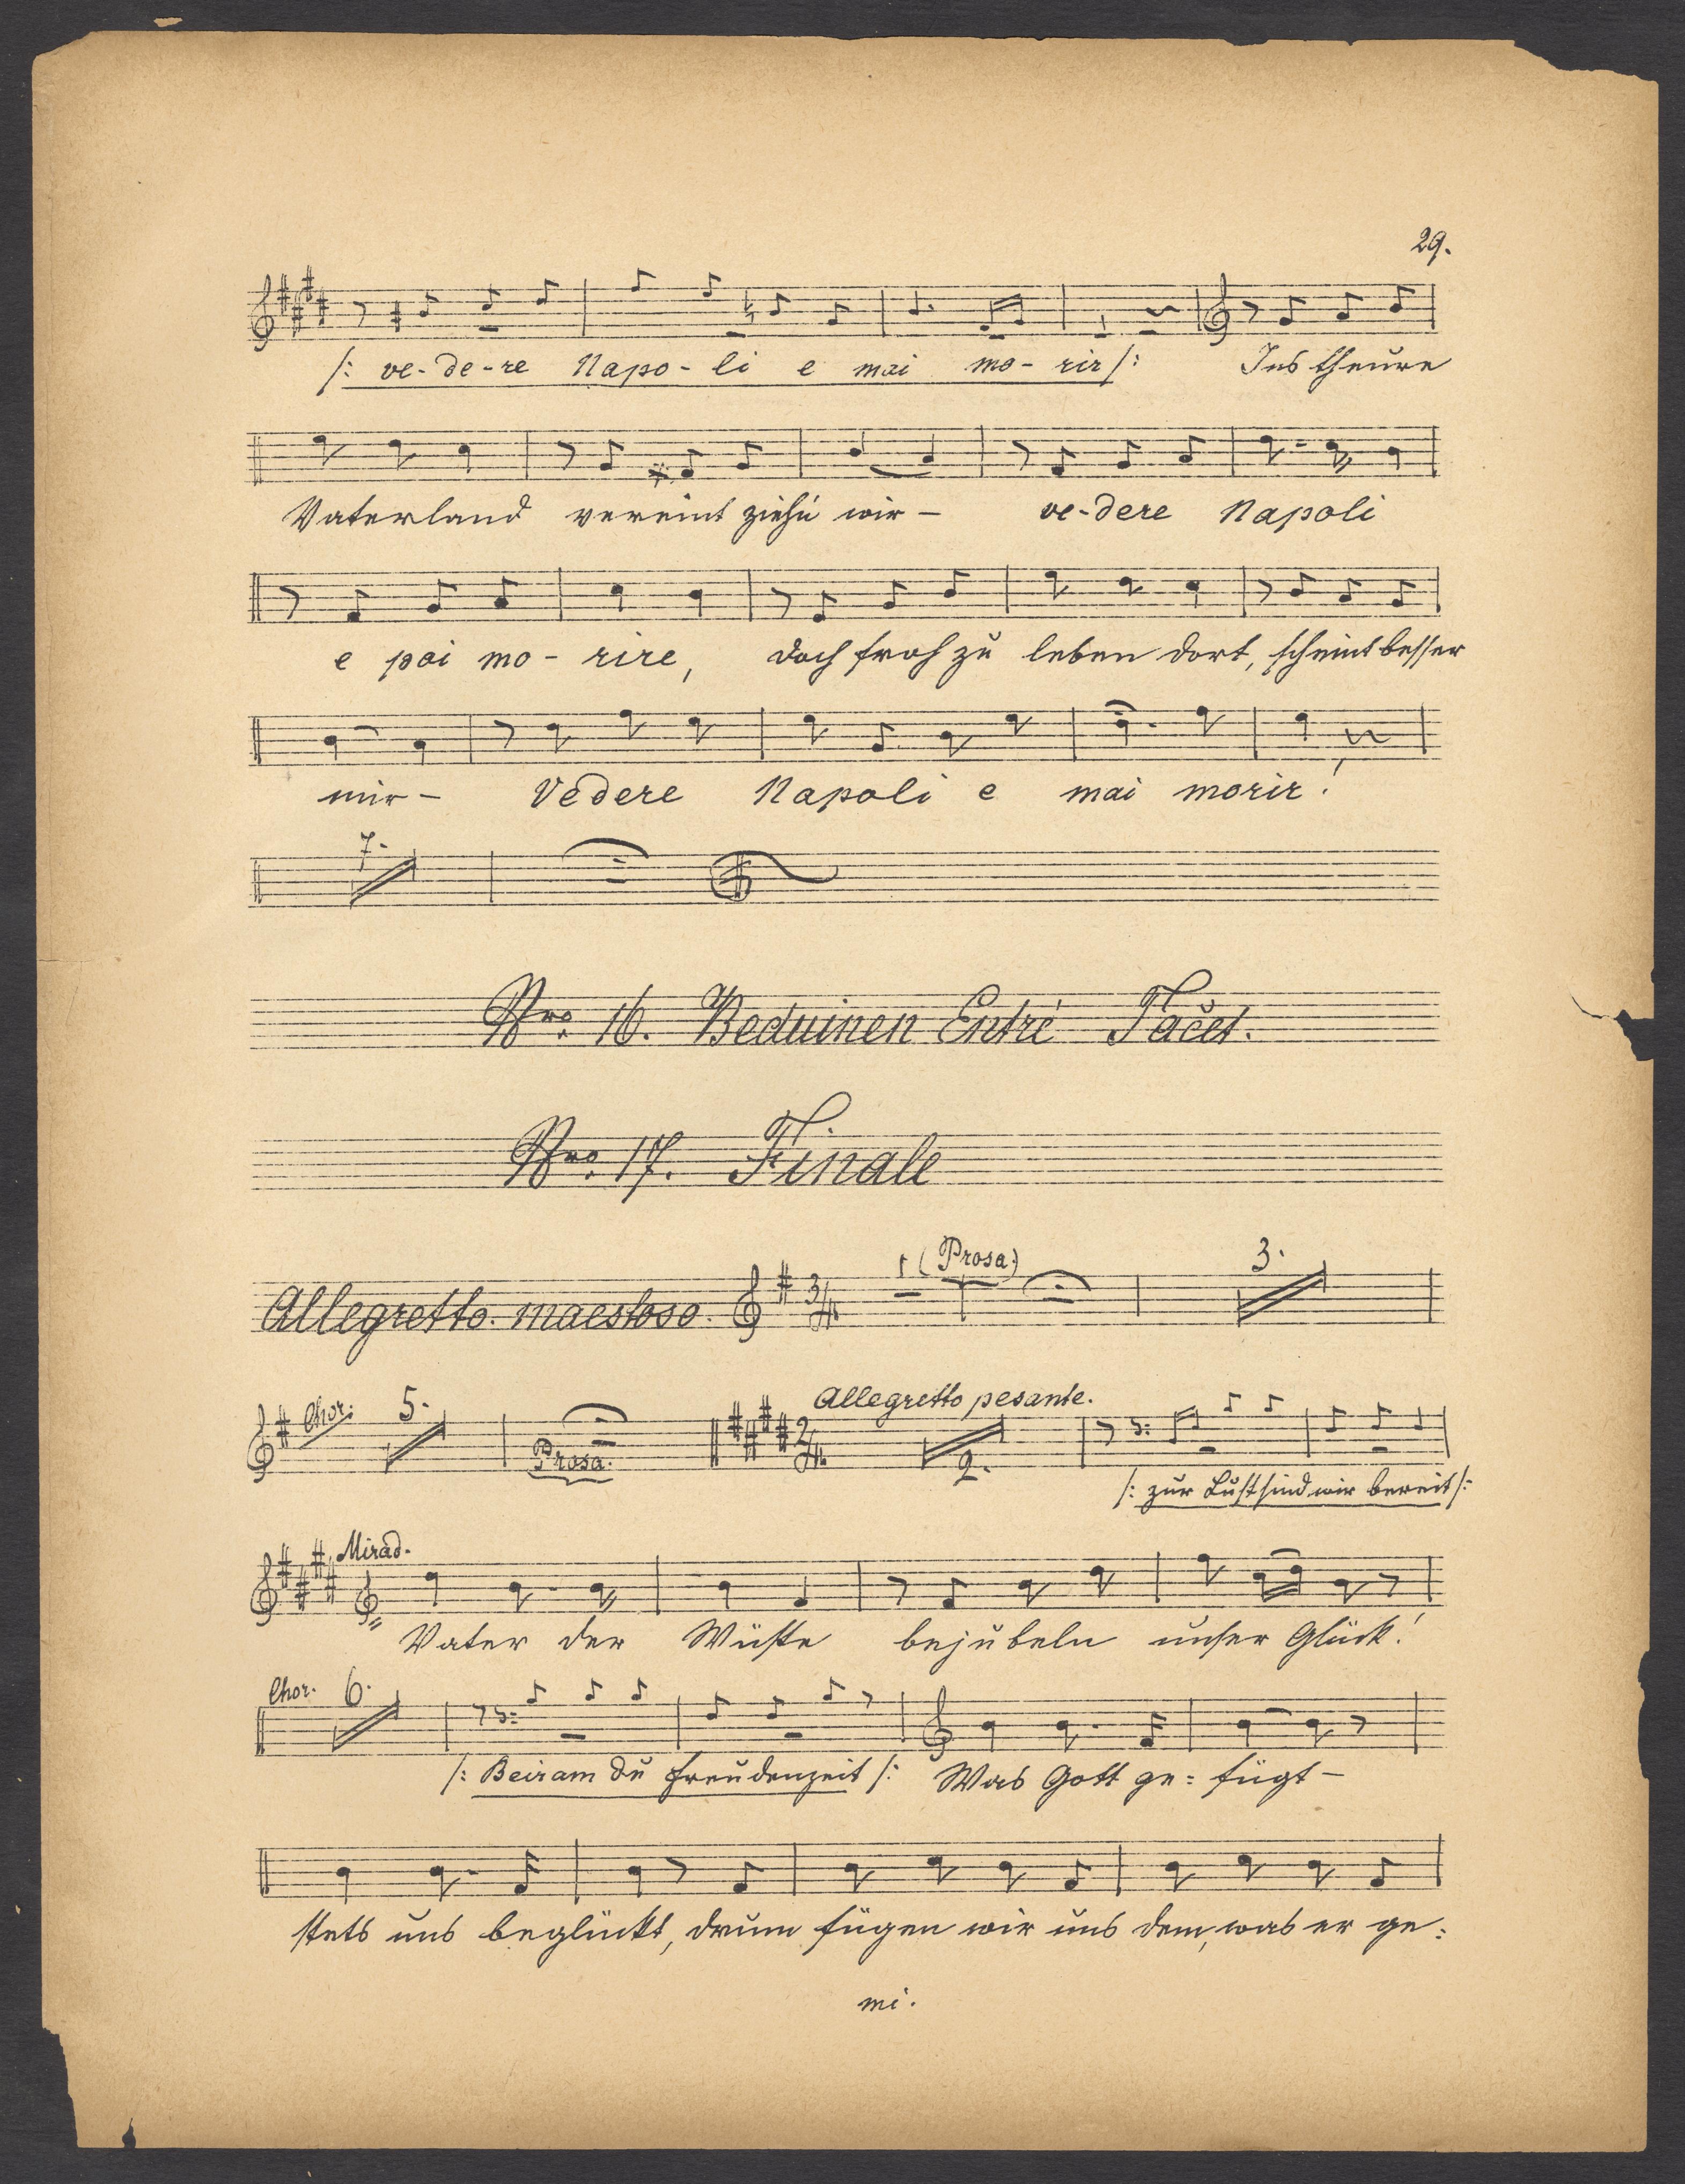 29.
/: ve-de-re Napo-li e mai mo-rir /: Ins theure
Vaterland vereint zieh'n wir – ve-dere Napoli
e poi mo-rire, doch froh zu leben dort, scheint besser
mir – Vedere Napoli e mai morir!
7.
Nro. 16. Beduinen Entré Tacet.
Nro. 17. Finale
1 (Prosa) 3.
Allegretto maestoso. 3/4
Allegretto pesante.
Chor: 5. Prosa. 2/4 2.
/: zur Lust sind wir bereit /:
Mirad.
Vater der Wüste bejubeln unser Glück!
Chor. 6.
/: Beiram du Freudenzeit /: Was Gott ge= fügt –
stets uns beglückt, drum fügen wir uns dem, was er ge=
mi.